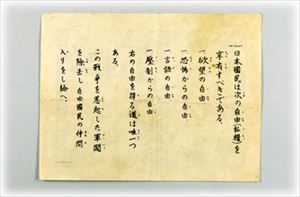 日本國民は次の自由(私權)を
享有すべきである。
一慾望の自由
一恐怖からの自由
一言語の自由
一壓制からの自由
右の自由を得る道は唯一つ
ある。
この戰爭を惹起した軍閥
を除去し自由國民の仲間
入りをし給へ。